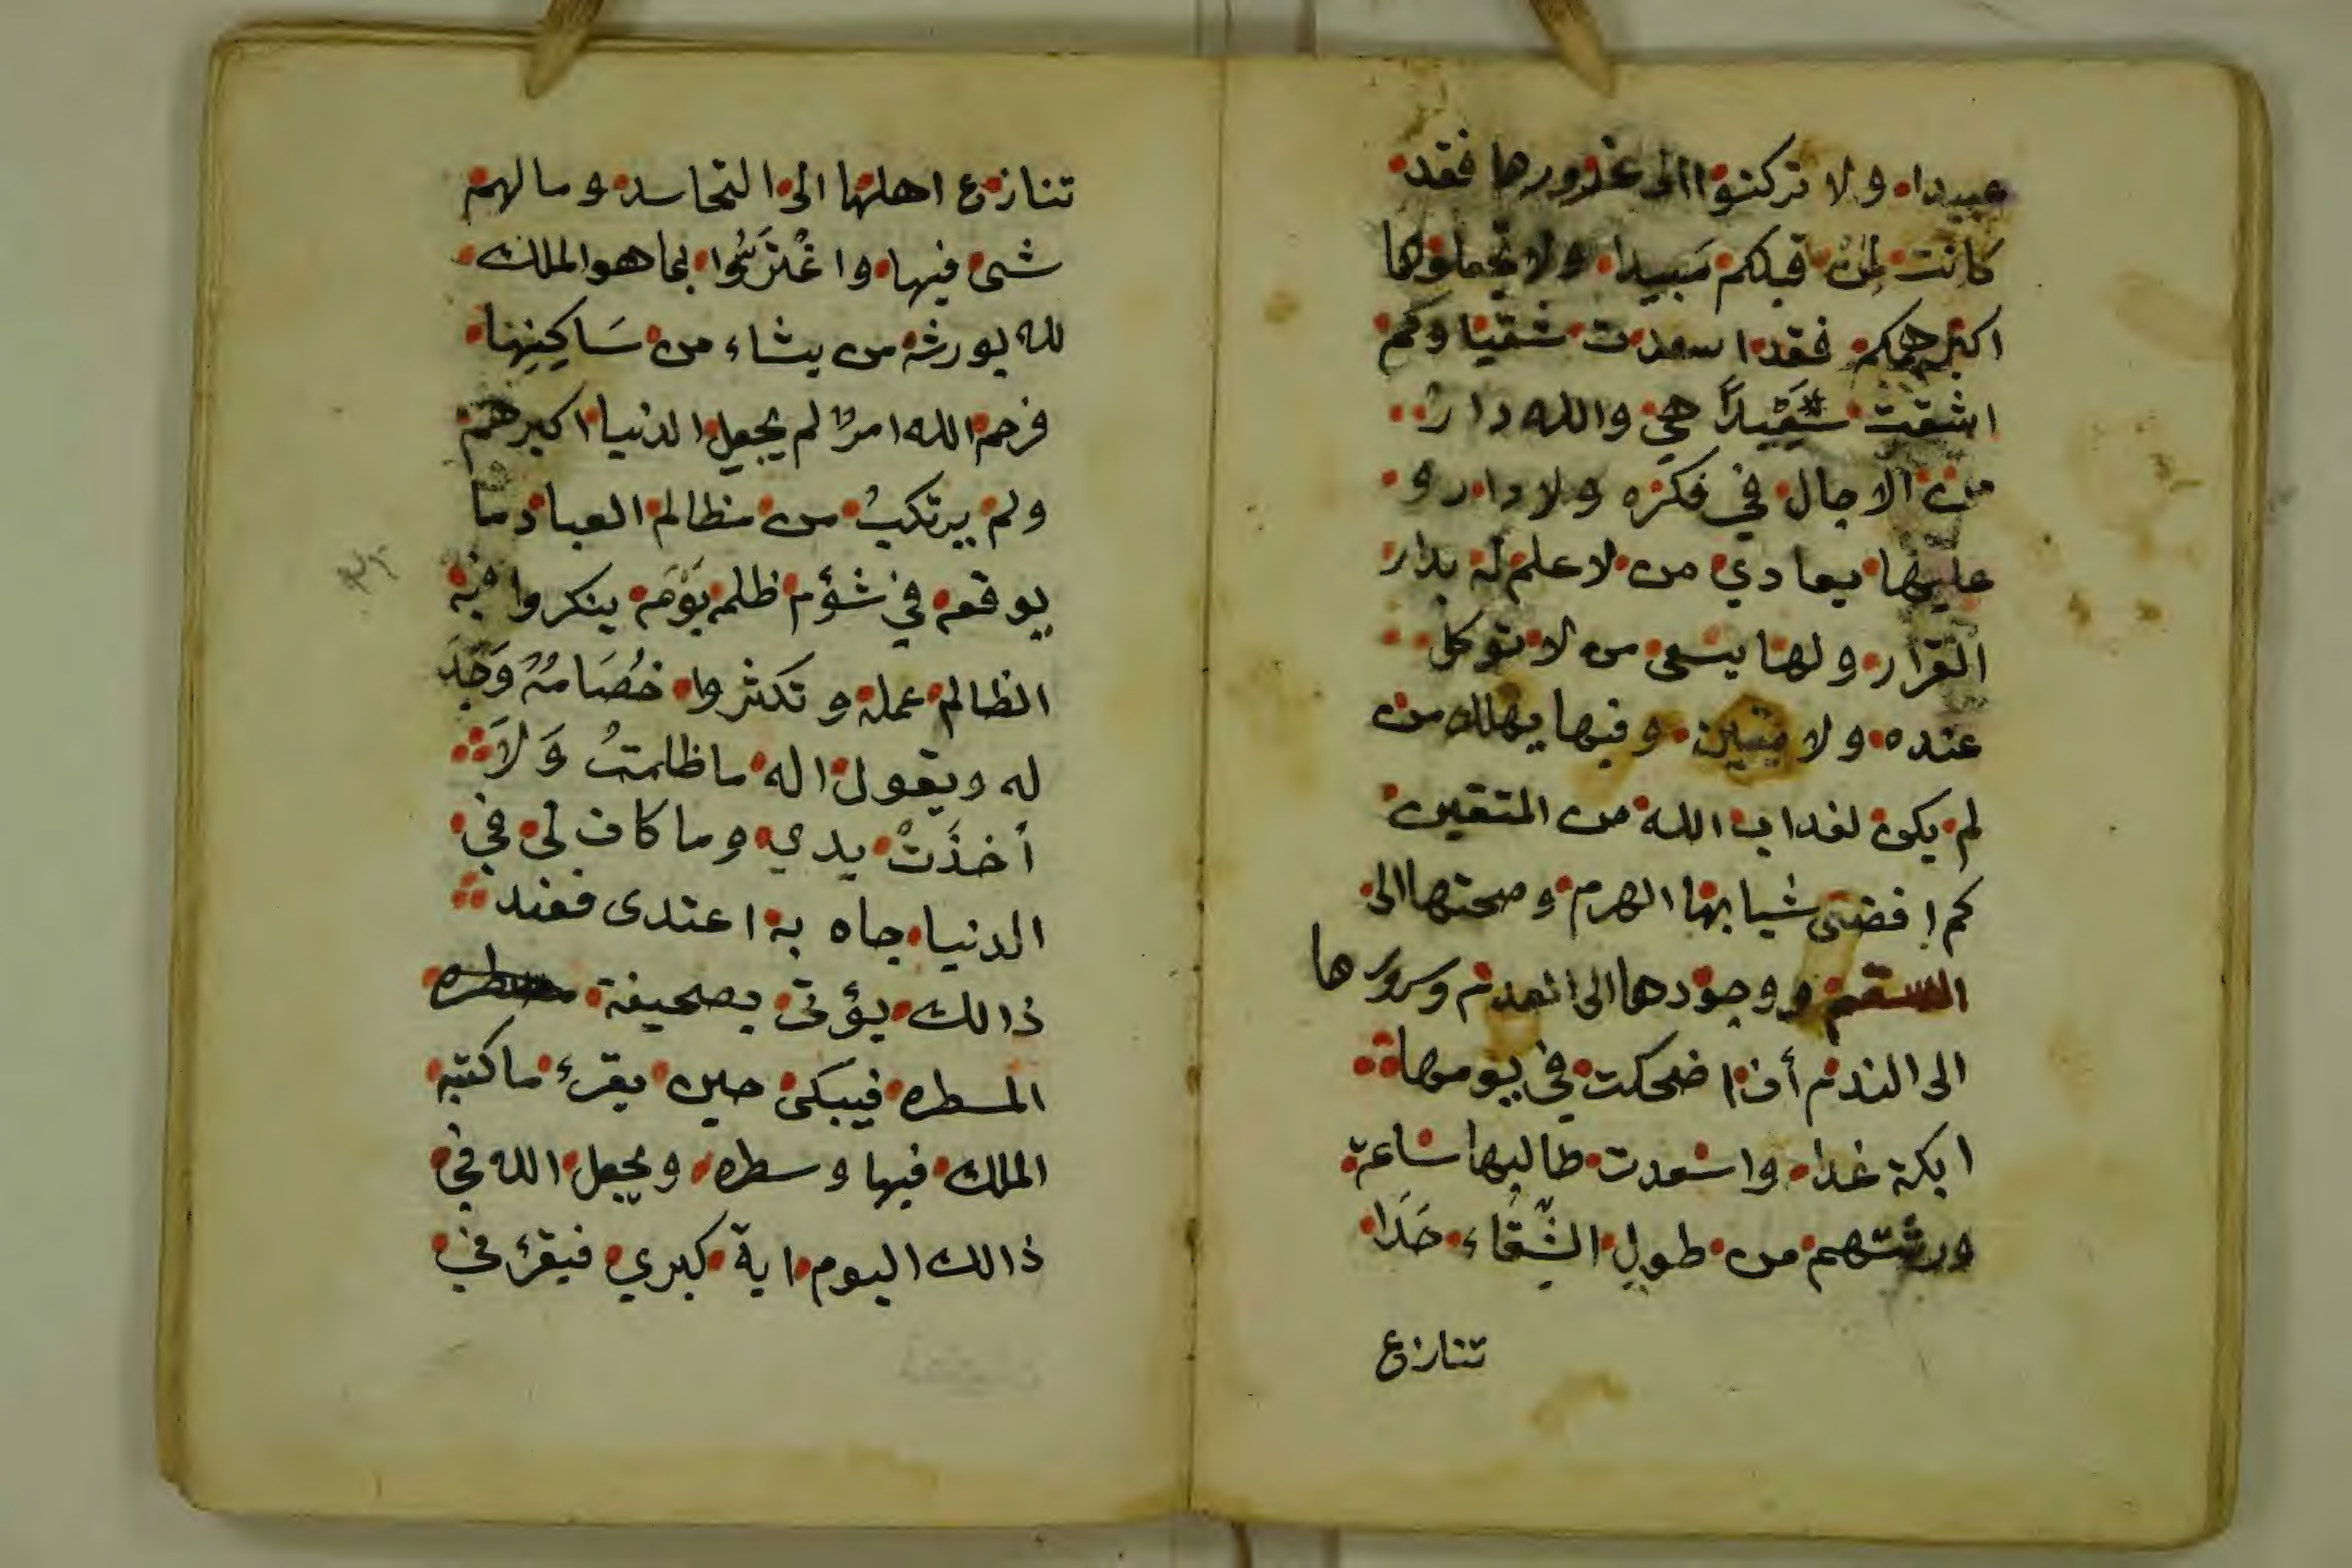 عبيدا ولا تركنوا الى غرورها فقد
كانت لمن قبلكم مبيدا ولا تجعلوها
اكبر همكم فقد اسعدت شقيا وكم
اشقت سَعِيْداً هي والله دار
من الاجال في فكره ولا دار و
عليها يعادي من لا علم له بدار
القرار ولها يسعى من لا توكل
عنده ولا يقين وفيها يهلك من
لم يكن لغداب الله من المتقين
كم افضى شبابها الهرم وصحتها الى
السقم ووجودها الى العدم وسرورها
الى الندم أن اضحكت في يومها
ابكة غدا واسعدت طالبها ساعة
ورثتهم من طول الشِّقَاء حَدَا
تنازع
تنازع اهلها الى التحاسد وما لهم
شى فيها واغْتَرُّوا بما هو الملك
لله يورثه من يشاء من سَاكِنِيهَا
فرحم الله امرًا لم يجعل الدنيا اكبر هم
ولم يرتكبُ من مظالم العباد ما
يوقعه في شؤم ظلمه يَوْمَ ينكروا فيه
الظالم عمله وتكثروا خُصَامُهُ وَجَدَ
له ويقول اله ما ظلمتُ وَلاَ
أخذَتْ يدي وما كان لي في
الدنيا جاه به اعتدى فعند
ذالك يؤتى بصحيفة
المسطره فيبكى حين يقرء ما كتبه
الملك فيها وسطره ويجعل الله في
ذالك اليوم اية كبري فيقرء في